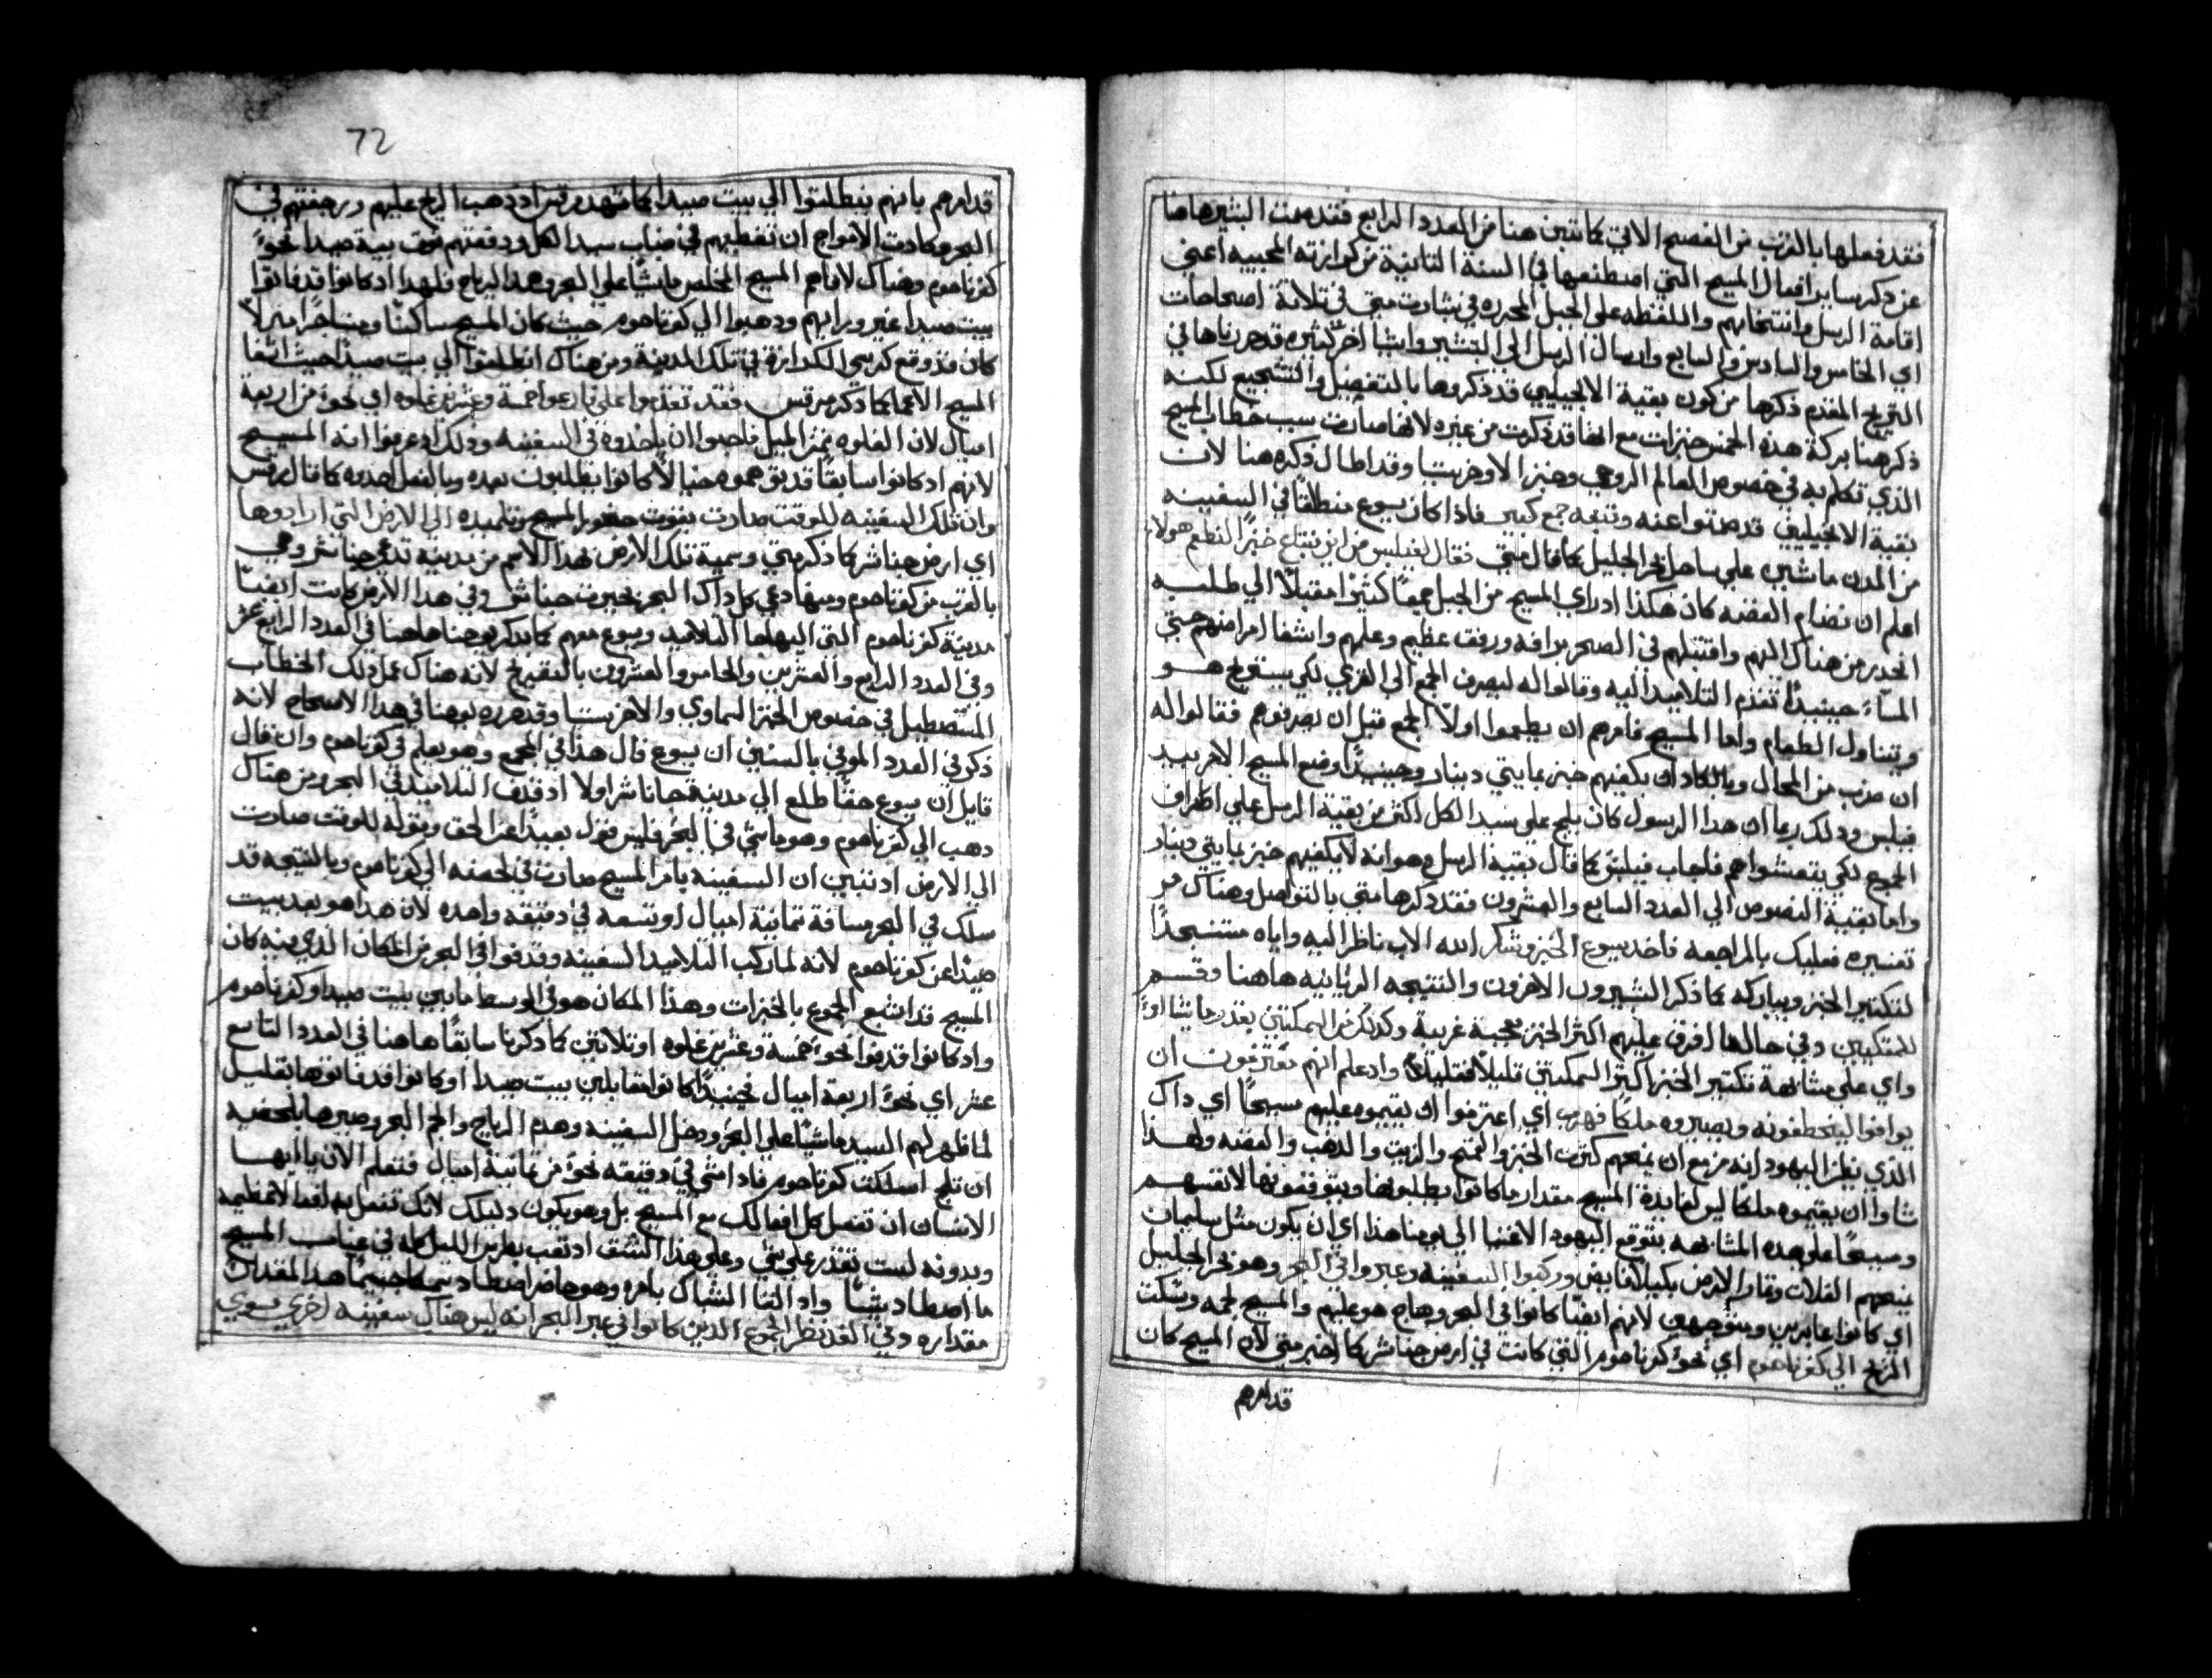 فقد فعلها بالقرب من الفصح الاتي كما تبين هنا من العدد الرابع فقد صمت البشير هاهنا
عن ذكر ساير افعال المسيح التي اصطنعها في السنة التانية من كرازته العجيبه اعني
اقامة الرسل وانتخابهم والملفظه على الجبل المحرره في بشارت متي في تلاتة اصحاحات
اي الخامس والسادس والسابع وارسال الرسل الي التبشير واشيا اخر كثيره قد حررناها في
التوريخ المقدم ذكرها من كون بقية الانجيليين قد ذكروها بالتفصيل والتشجيع لكنه
ذكر هنا بركة هذه الخمس خبزات مع انها قد ذكرت من غيره لانها صارت سبب خطاب المسيح
الذي تكلم به في خصوص العالم الروحي وخبز الاوخرستيا وقد اطال ذكره هنا لان
بقية الانجيليين قد صمتوا عنه وتبعه جمع كبير فاذا كان يسوع منطلقا في السفينه
من المدن ماشين علي ساحل بحر الجليل كما قال متي فقال لفيلبس من اين نبتاع خبزا لنطعم هولاء
اعلم ان نضام القضيه كان هكذا اد راي المسيح من الجبل جمعا كثيرا مقبلا الي طلبه
انحدر من هناك اليهم واقتبلهم في الصحرا برافه ورفق عظيم وعلمهم واشفا امراضهم حتي
المساء حينيدا تقدم التلاميد اليه وقالوا له ليصرف الجمع الي القري لكي يستريح هو
ويتناول الطعام واما المسيح فامرهم ان يطعموا اولا الجمع قبل ان يصرفوهم فقالوا له
ان ضرب من المحال وبالكاد ان يكفيهم خبز بمايتي دينار وحينيدا وضع المسيح الامر بيد
فيلبس ودلك ربما ان هدا الرسول كان يلج علي سيد الكل اكثر من بقية الرسل علي اطراف
الجموع لكي يتعشوا هم فاجاب فيلبس كما قال بقية الرسل وهو انه لا يكفيهم خبز بمايتي دينار
واما بقية النصوص الي العدد السابع والعشرون فقد ذكرها متي بالتواصل وهناك مر
تفسيره فعليك بالمراجعه فاخد يسوع الخبز وشكر الله الاب ناظرا اليه واياه مستنجدا
لتكتير الخبز ويباركه كما ذكر البشيرون الاخرون والنتيجه الربانيه هاهنا وقسم
للمتكيين وفي حالها افرق عليهم اكثر الخبز بعجبة غريبة وكدلك من السمكتين بقدر ما يشااو
واي علي مشابهة تكتير الخبز اكتر السمكتين قليلا فقليلا واد علم انهم مقترفون ان
يوافوا ليختطفونه ويصيروه ملكا فهرب اي اعتزموا ان يقيموه عليهم مسيحا اي داك
الذي يظن اليهود انه مزمع ان يمنحهم كثرت الخبز والقمح والزيت والدهب والفضه ولهدا
شاوا ان يقيموه ملكا ليس لفايدة المسيح مقدار ما كانوا يطلبونها ويتوقعونها لانفسهم
ومسيحا علي هده المشابهه يتوقع اليهود الاغنيا الي يومنا هذا اي ان يكون مثل سليمان
يمنحهم الغلات وتمار الارض بكيل فايض وركبوا السفينه وعبروا في البحر وهو بحر الجليل
اي كانوا عابرين ومتوجهين لانهم ايضا كانوا في البحر وهاج هو عليهم والمسيح لجمه وسكت
الريح الي كفرناحوم اي نحو كفرناحوم التي كانت في ارض جناشر كما اخبر متي لان المسيح كان
قد امرهم
72
قد امرهم بانهم ينطلقوا الي بيت صيدا كما شهد مرقس اد دهب الريح عليهم ورجفتهم في
البحر وكادت الامواج ان تغطيهم في غياب سيد الكل ودفعتهم نحو بيت صيدا نحو
كفرناحوم وهناك لاقاهم المسيح المخلص ماشيا علي البحر وهدا الرياح فلهدا اد كانوا قد فاتوا
بيت صيدا غير ورايهم ودهبوا الي كفرناحوم حيث كان المسيح ساكنا ومستاجرا منزلا
كان قد وضع كرسي الكرازة في تلك المدينة ومن هناك انطلقوا الي بيت صيدا حيث اشفا
المسيح الاعما كما ذكر مرقس فقد تقدموا علي ما رعوا خمسة وعشرين غلوه اي نحو من اربعة
اميال لان الغلوه تمن الميل فاحبوا ان ياخدوه في السفينه ودلك اد عرفوا انه المسيح
لانهم اد كانوا سابقا قد توهموه خيالا كانوا يطلبون بعده وبالفعل اخدوه كما قال مرقس
وان تلك السفينه للوقت صارت بقوت حضور المسيح وتلميده الي الارض التي ارادوها
اي ارض جناشر كما ذكر متي وسمية تلك الارض بهدا الاسم من مدينة تدعي جناشر وهي
بالقرب من كفرناحوم ومنها دعي كل داك البحر بحيرت جناشر وفي هدا الارض كانت ايضا
مدينة كفرناحوم التي اليها جا التلاميد ويسوع معهم كما يدكر يوحنا هاهنا في العدد الرابع عشر
وفي العدد الرابع والعشرين والخامس والعشرون بالتقريح لانه هناك عمل دلك الخطاب
المستطيل في خصوص الخبز السماوي والاخرستيا وقد حرره يوحنا في هدا الاصحاح لانه
ذكر في العدد الموفي بالستين ان يسوع قال هذا في المجمع وهو يعلم في كفرناحوم وان قال
قايل ان يسوع حقا طلع الي مدينة جاناشر اولا اد قدف التلاميد في البحر ومن هناك
دهب الي كفرناحوم وهو ماشي في البحر فليس قول بعيدا عن الحق وبقوله للوقت صارت
الي الارض اد تبين ان السفينه بامر المسيح صارت في لحضه الي كفرناحوم وبالنتيجه قد
سلك في البحر مسافة تمانية اميال او تسعه في دقيقه واحده لان هدا هو بعد بيت
صيدا عن كفرناحوم لانه لما ركب التلاميد السفينه وقدفوا في البحر من المكان الذي فيه كان
المسيح قد اشبع الجموع بالخبزات وهذا المكان هو في الوسط مابين بيت صيدا وكفرناحوم
واد كانوا قدفوا نحو خمسة وعشرين غلوه او تلاتين كما ذكرنا سابقا هاهنا في العدد التاسع
عشر اي نحو اربعة اميال فحينيدا كانوا مقابلين بيت صيدا او كانوا قد فاتوها بقليل
لما ظهر لهم السيد ماشيا علي البحر ودخل السفينه وهدم الرياح والجم البحر وصيرها بلحضه
ان تلج اسلكت كفرناحوم فاد امشي في دقيقه نحو من تمانية اميال فتعلم الان يا ايها
الانسان ان تفعل كل افعالك مع المسيح بل وهو يكون دليلك لانك تفعل به افعالا عظيمه
وبدونه لست تقدر علي شي وعلي هذا النسق اد تعب بطرس الليل كله في غياب المسيح
ما اصطاد شيئا واد القا الشباك بامره وهو حاضر اصطاد سمكا جسيما هدا المقدار
مقداره وفي الغد نظر الجموع الدين كانوا في عبر البحر انه ليس هناك سفينه اخري سوي